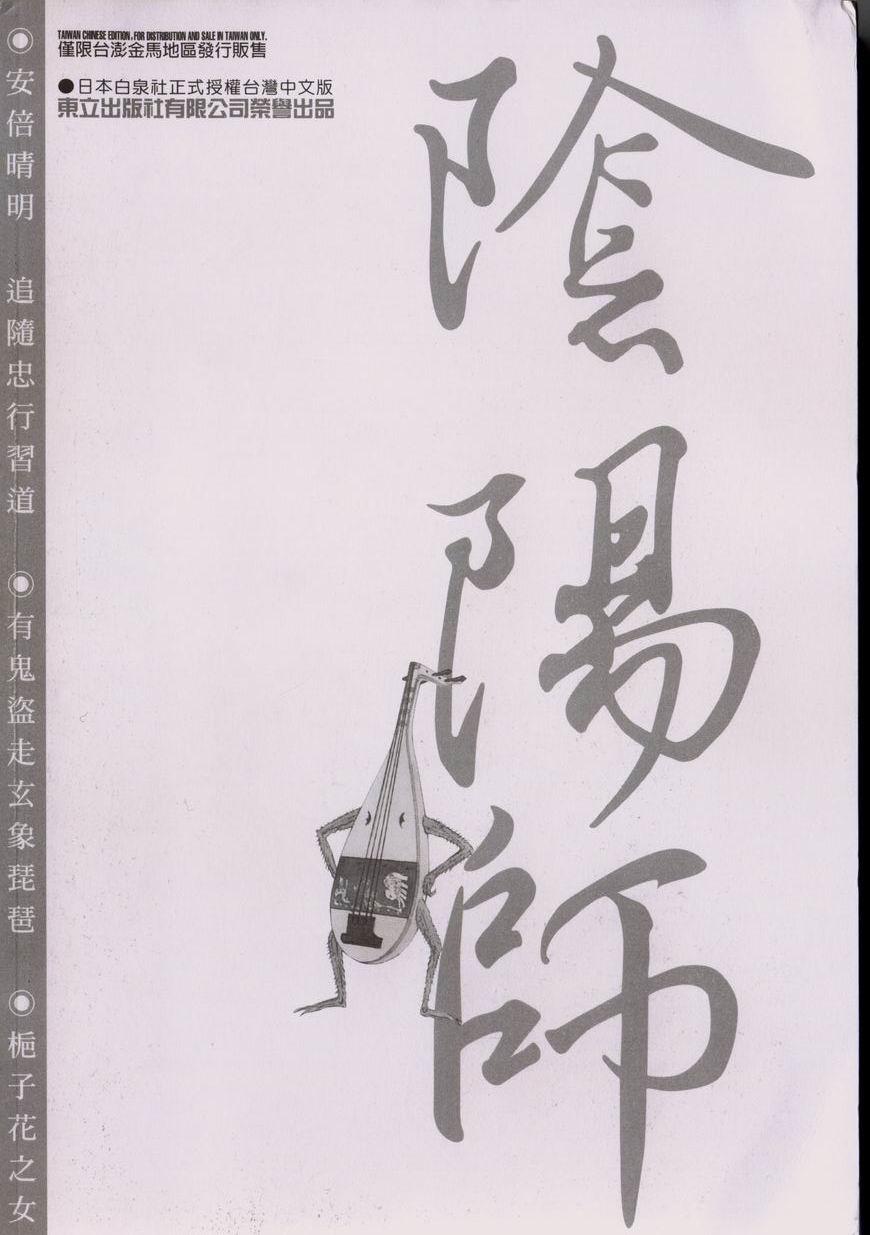 TAIWAN CHINESE EDITION, FOR DISTRIBUTION AND SALE IN TAIWAN ONLY.
僅限台澎金馬地區發行販售
●日本白泉社正式授權台灣中文版
東立出版社有限公司榮譽出品
陰陽師
◉安倍晴明 追隨忠行習道 ◉有鬼盜走玄象琵琶 ◉梔子花之女